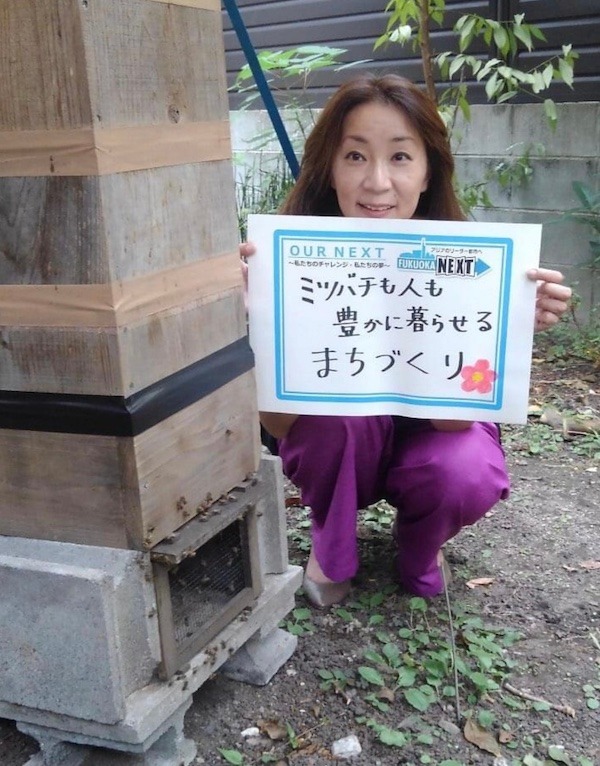 OUR NEXT
~私たちのチャレンジ・私たちの夢~
アジアのリーダー都市へ
FUKUOKA NEXT
ミツバチも人も
豊かに暮らせる
まちづくり